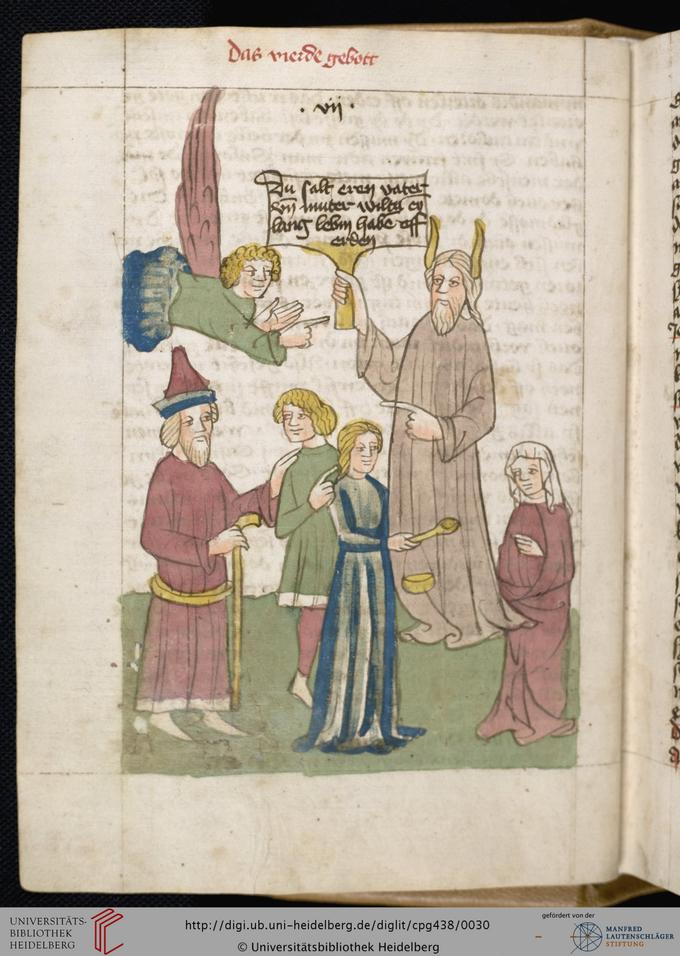 Das vierde gebott
· vij ·
Du salt eren vater
vn̄ muter wiltu ey
lang lebin habe vff
erden
UNIVERSITÄTS-
BIBLIOTHEK
HEIDELBERG
http://digi.ub.uni-heidelberg.de/diglit/cpg438/0030
© Universitätsbibliothek Heidelberg
gefördert von der
MANFRED
LAUTENSCHLÄGER
STIFTUNG